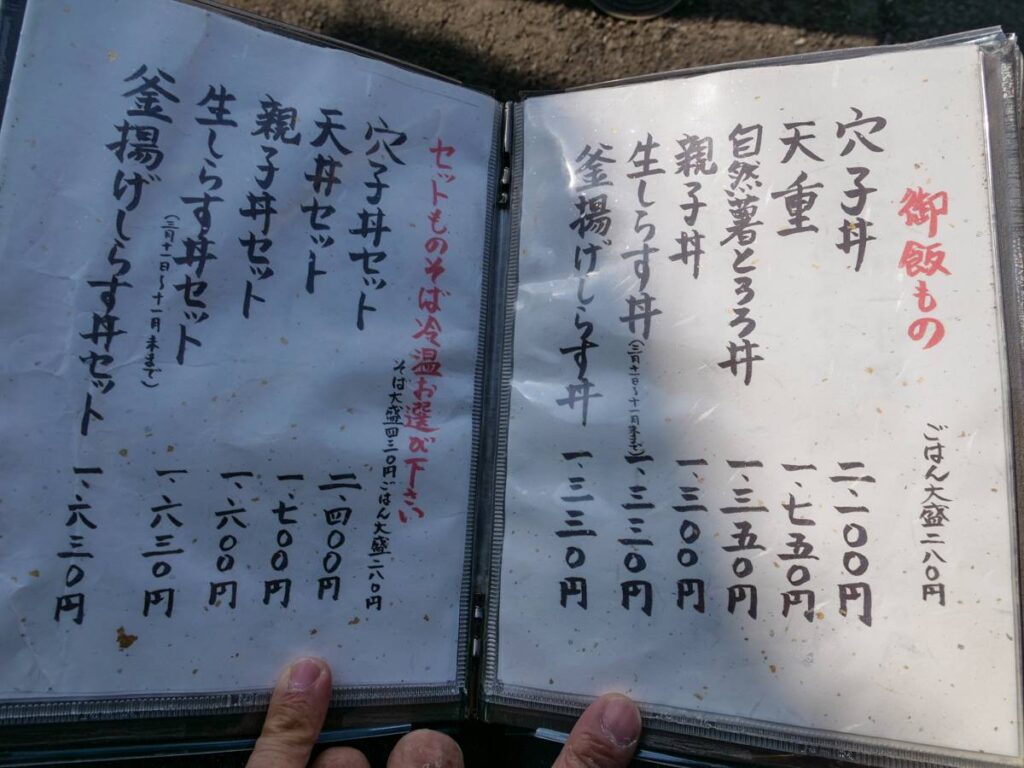 御飯もの
ごはん大盛二八〇円
穴子丼 二、一〇〇円
天重 一、七五〇円
自然薯とろろ丼 一、三五〇円
親子丼 一、三〇〇円
生しらす丼(三月十一日〜十一月末まで) 一、三三〇円
釜揚げしらす丼 一、三三〇円
セットものそば冷温お選び下さい
そば大盛四三〇円ごはん大盛二八〇円
穴子丼セット 二、四〇〇円
天丼セット 一、七〇〇円
親子丼セット 一、六〇〇円
生しらす丼セット 一、六三〇円
(三月十一日〜十一月末まで)
釜揚げしらす丼セット 一、六三〇円